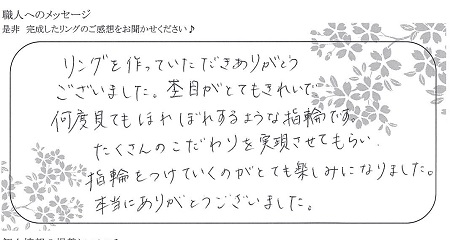 職人へのメッセージ
是非 完成したリングのご感想をお聞かせください♪
リングを作っていただきありがとう
ございました。杢目がとてもきれいで
何度見てもほれぼれするような指輪です。
たくさんのこだわりを実現させてもらい
指輪をつけていくのがとても楽しみになりました。
本当にありがとうございました。